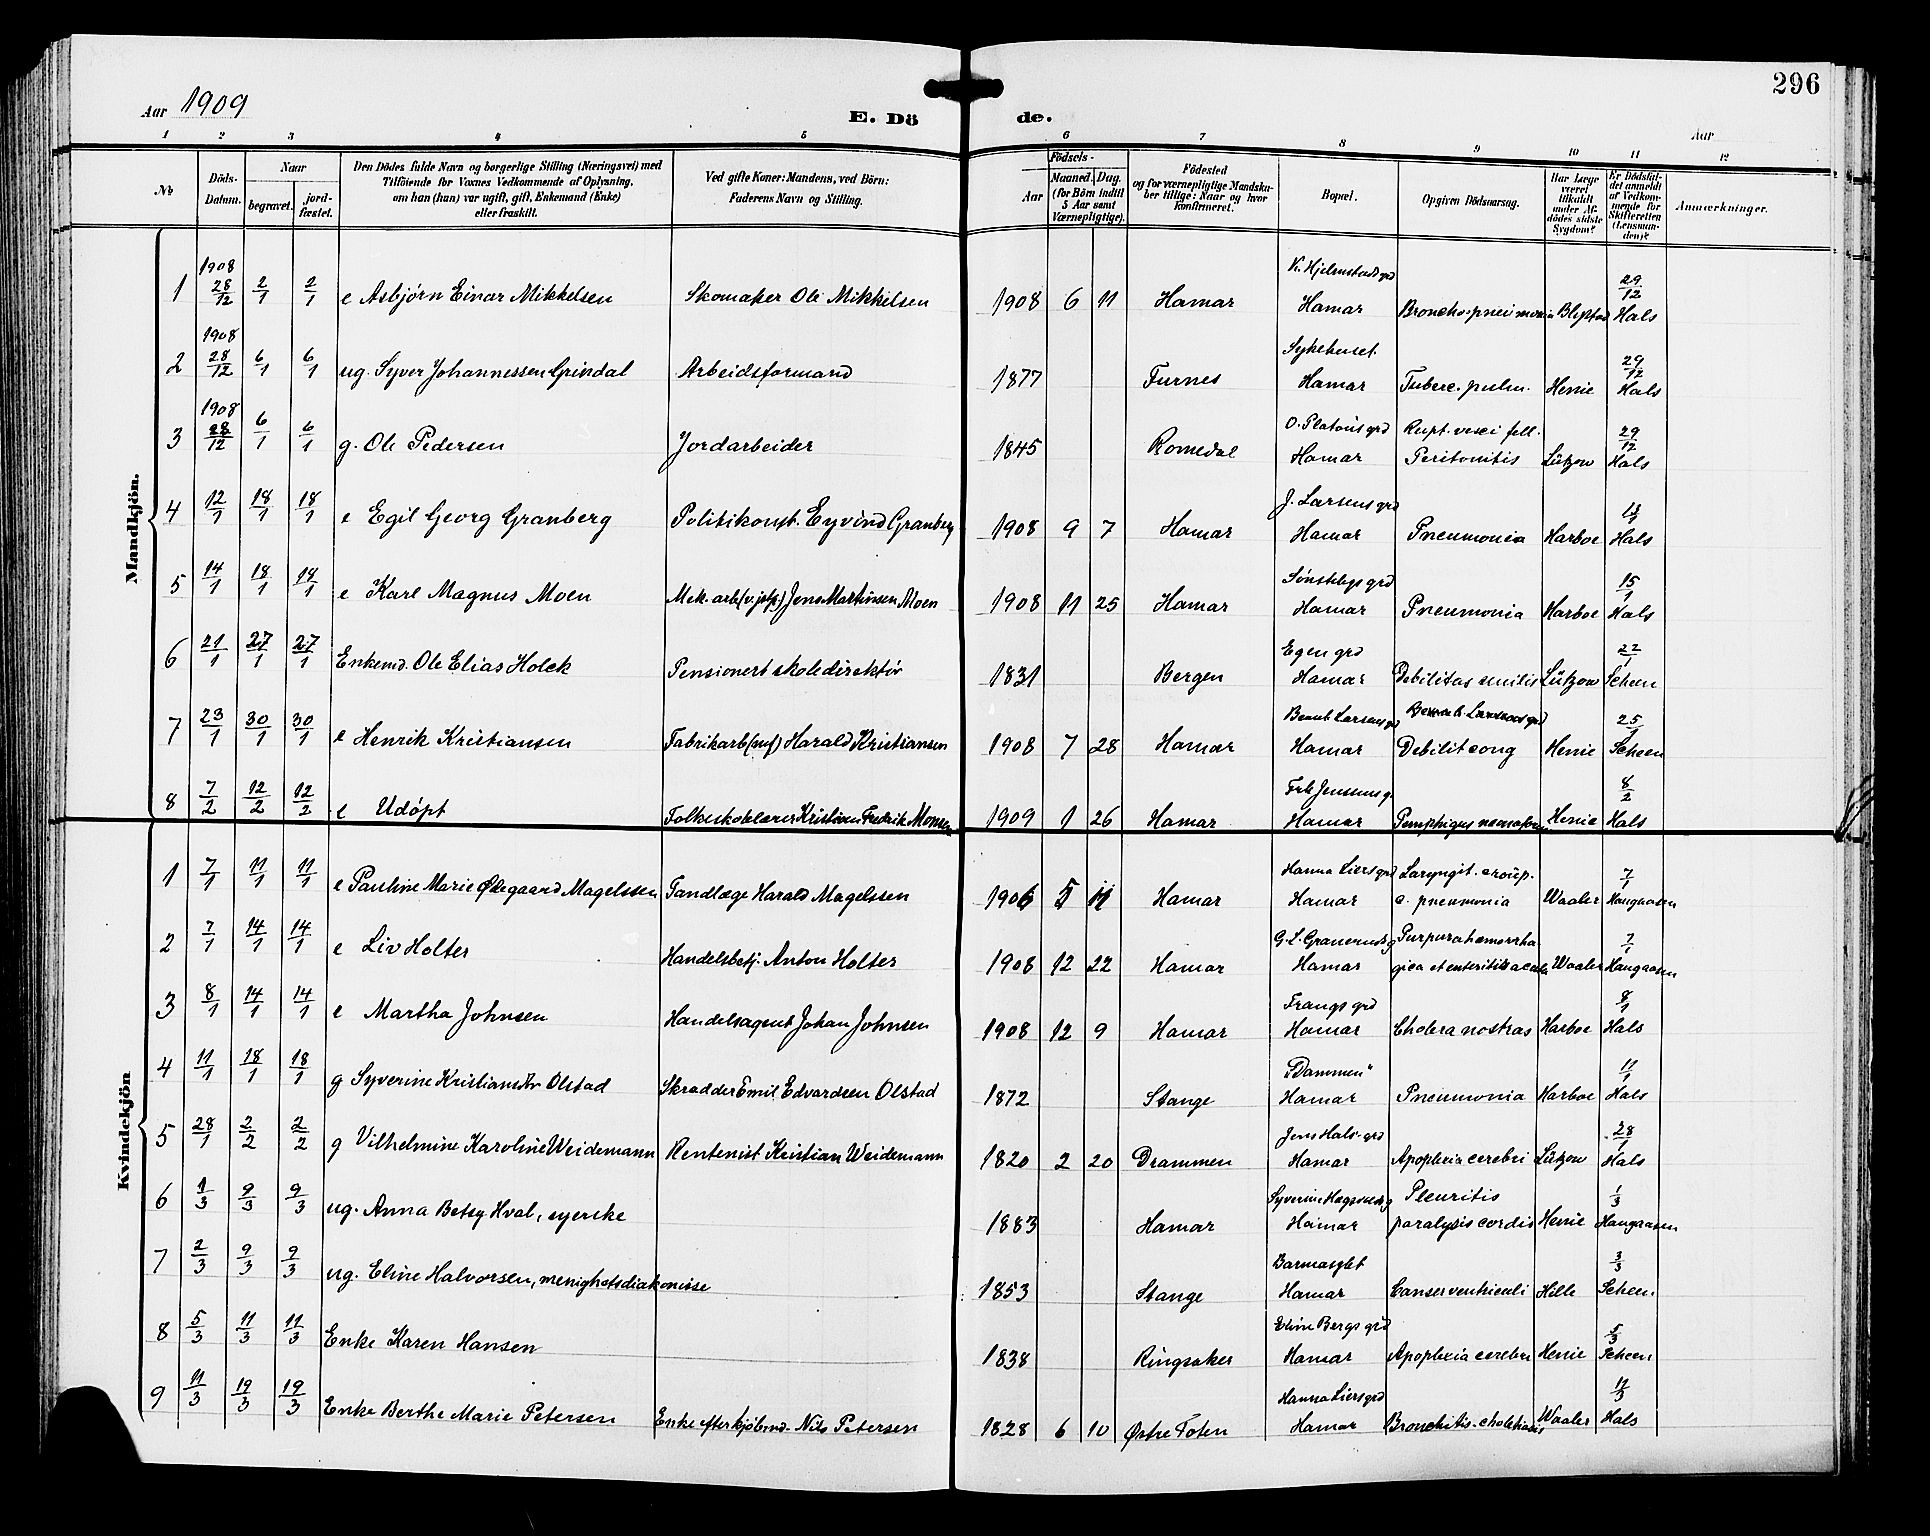 296
Aar 1909
E. Dö de.
Aar
1 2 3 4 5 6 7 8 9 10 11 12
No
Döds-Datum.
Naar
begravet.
jord-fæstet.
Den Dödes fulde Navn og borgerlige Stilling (Næringsvei) med Tilföiende for Voxnes Vedkommende af Oplysning, om han (hun) var ugift, gift, Enkemand (Enke) eller fraskilt.
Ved gifte Koner: Mandens, ved Börn: Faderens Navn og Stilling.
Födsels-
Aar
Maaned. Dag.
(for Börn indtil 5 Aar samt Værnepligtige).
Födested og for værnepligtige Mandskaber tillige: Naar og hvor konfirmeret.
Bopæl.
Opgiven Dödsaarsag.
Har Læge været tilkaldt under Afdödes sidste Sygdom?
Er Dödsfaldet anmeldt af Vedkommende for Skifteretten (Lensmanden)?
Anmærkninger.
Mandkjön.
1 1908 28/12 2/1 2/1 e Asbjörn Einar Mikkelsen Skomaker Ole Mikkelsen 1908 6 11 Hamar K. Hjelmstadsgrd Hamar Broncho-pneumonia 29/12 Hals
2 1908 28/12 6/1 6/1 ug. Syver Johannessen Grindal Arbeidsformand 1877 Furnes Sykehuset. Hamar Tuberc. pulm. Henie 29/12 Hals
3 1908 28/12 6/1 6/1 g. Ole Pedersen Jordarbeider 1845 Romedal O. Platousgrd Hamar Rupt. vesci fell. Peritonitis Lützow 29/12 Hals
4 12/1 18/1 18/1 e Egil Georg Granberg Politikonst. Eyvind Granberg 1908 9 7 Hamar J. Larsensgrd Hamar Pneumonia Harboe Hals
5 14/1 18/1 18/1 e Karl Magnus Moen Mek. arb (v. jstb.) Jens Martinsen Moen 1908 11 25 Hamar Sønstebys grd Hamar Pneumonia Harboe 15/1 Hals
6 21/1 27/1 27/1 Enkemd. Ole Elias Holck Pensionert skoledirektör 1831 Bergen Egen grd Hamar Debilitas senilis Lützow 22/1 Scheen
7 23/1 30/1 30/1 e Henrik Kristiansen Fabrikarb. Harald Kristiansen 1908 7 28 Hamar Bernh. Larsens grd Hamar Debilit cong Henie 25/1 Scheen
8 7/2 12/2 12/2 e Udöpt Folkeskolelærer Kristian Fredrik Monsen 1909 1 26 Hamar Frk Jenssens g. Hamar Pemphigus Henie 8/2 Hals
Kvindekjön
1 7/1 11/1 11/1 e Pauline Marie Ødegaard Magelssen Tandlæge Harald Magelssen 1906 5 11 Hamar Hanna Liersgrd Hamar Laryngit. croup. c. pneumonia Waaler 7/1 Haugaasen
2 7/1 14/1 14/1 e Liv Holter Handelsbetj. Anton Holter 1908 12 22 Hamar Hamar Purpura hæmorrhagica et enteritis acuta Waaler 7/1 Haugaasen
3 8/1 14/1 14/1 e Martha Johnsen Handelsagent Johan Johnsen 1908 12 9 Hamar Frangs grd Hamar Cholera nostras Harboe 8/1 Hals
4 11/1 18/1 18/1 g Syverine Kristiansdtr Olstad Skrædder Emil Edvardsen Olstad 1872 Stange "Dammen" Hamar Pneumonia Harboe 11/1 Hals
5 28/1 2/2 2/2 g Vilhelmine Karoline Weidemann Rentenist Kristian Weidemann 1820 2 20 Drammen Jens Hals. grd Hamar Apoplexia cerebri Lützow 28/1 Hals
6 1/3 9/3 9/3 ug. Anna Betsy Hval, syerske 1883 Hamar Hamar Pleuritis paralysis cordis Henie 1/3 Haugaasen
7 2/3 9/3 9/3 ug. Eline Halvorsen, menighetsdiakonisse 1853 Stange Barneasylet Hamar Canser ventriculi Hille 3/3 Scheen
8 5/3 11/3 11/3 Enke Karen Hansen 1838 Ringsaker Eline Bergs grd Hamar Apoplexia cerebri Henie 5/3 Scheen
9 11/3 19/3 19/3 Enke Berthe Marie Petersen Enke efter kjöbmd. Nils Petersen 1828 6 10 Østre Toten Hanna Liersgrd Hamar Bronchitis Waaler 11/3 Hals